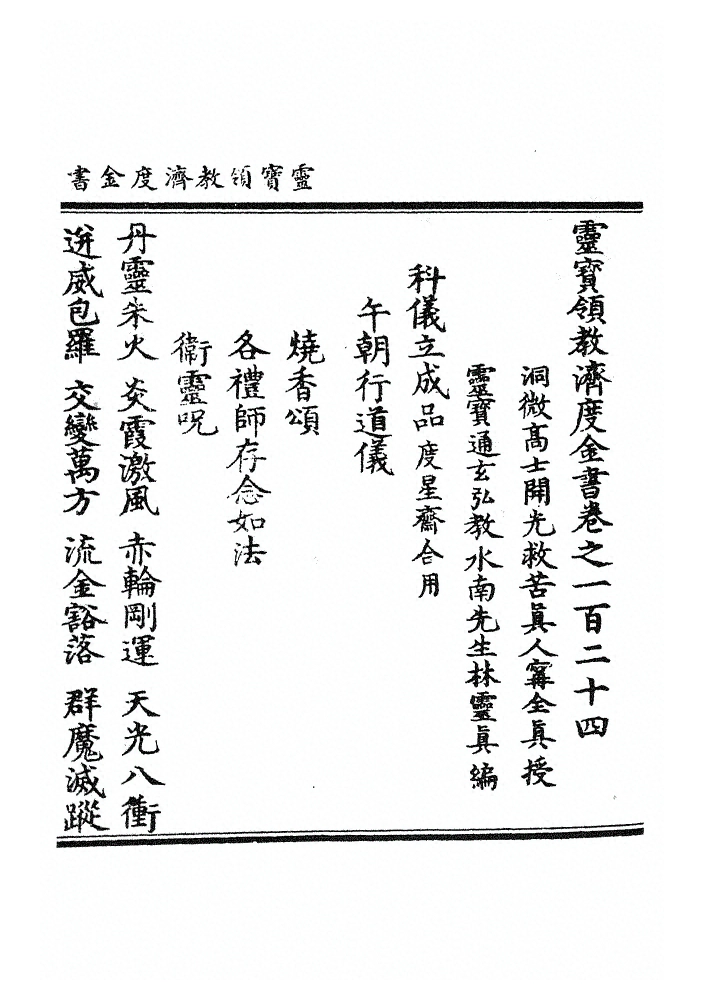 靈寶領教濟度金書
靈寶領教濟度金書卷之一百二十四
洞微高士開光救苦眞人甯全眞授
靈寶通玄弘教水南先生林靈眞編
科儀立成品度星齋合用
午朝行道儀
燒香頌
各禮師存念如法
衛靈呪
丹靈朱火　炎霞激風　赤輪剛運　天光八衝
迸威包羅　交變萬方　流金豁落　群魔滅蹤